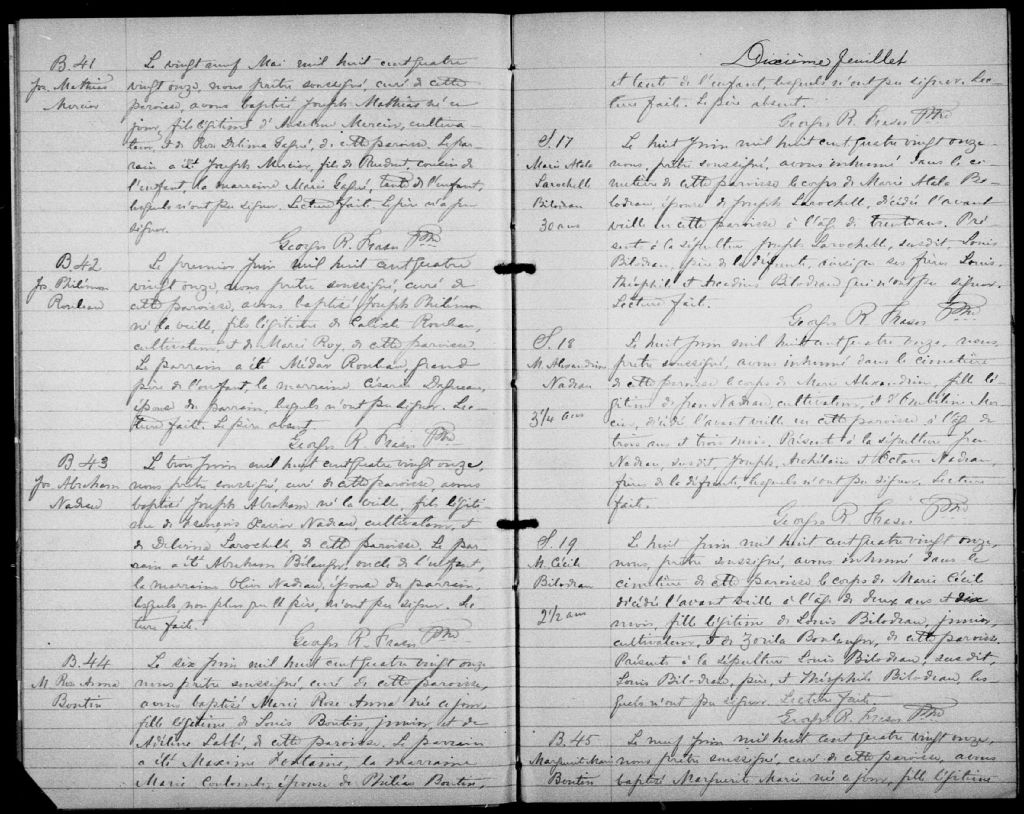 B. 41
Jos. Mathias
Mercier
Le vingt neuf Mai mil huit cent quatre
vingt onze, nous prêtre soussigné, curé de cette
paroisse, avons baptisé Joseph Mathias né ce
jour, fils légitime d'Anselme Mercier, cultiva
teur, et de Rose Delima Gagné, de cette paroisse. Le par
rain a été Joseph Mercier, fils de Prudent cousin de
l'enfant, la marraine Marie Gagné, tante de l'enfant,
lesquels n'ont pu signer. Lecture faite. Le père n'a pu
signer.
Georges R. Fraser Ptre
B. 42
Jos. Philémon
Rouleau
Le premier Juin mil huit cent quatre
vingt onze, nous prêtre soussigné, curé de
cette paroisse, avons baptisé Joseph Philémon
né la veille, fils légitime de Calixte Rouleau,
cultivateur, et de Marie Roy, de cette paroisse.
Le parrain a été Médar Rouleau, grand
père de l'enfant, la marraine Césarie
épouse du parrain, lesquels n'ont pu signer. Lec-
ture faite. Le père absent.
Georges R. Fraser Ptre
B. 43
Jos. Abraham
Nadeau
Le trois Juin mil huit cent quatre vingt onze,
nous prêtre soussigné, curé de cette paroisse, avons
baptisé Joseph Abraham né la veille, fils légiti
me de François Xavier Nadeau, cultivateur, et
de Delvina Larochelle, de cette paroisse. Le par
rain a été Abraham Bélanger, oncle de l'enfant,
la marraine Nadeau, épouse du parrain,
lesquels, non plus que le père, n'ont pu signer. Lec
ture faite.
Georges R. Fraser Ptre
B. 44
M. Rose Anna
Boutin
Le six Juin mil huit cent quatre vingt onze
nous prêtre soussigné, curé de cette paroisse,
avons baptisé Marie Rose Anna née ce jour,
fille légitime de Louis Boutin, junior, et de
Adéline Labbé, de cette paroisse. Le parrain
a été Maxime Fontaine, la marraine
Marie Coulombe, épouse de Philias Boutin,
Dixième feuillet
et tante de l'enfant, lesquels n'ont pu signer. Lec-
ture faite. Le père absent.
Georges R. Fraser Ptre
S. 17
Marie Atala
Larochelle
Bilodeau
30 ans
Le huit Juin mil huit cent quatre vingt onze
nous, prêtre soussigné, avons inhumé dans le ci-
metière de cette paroisse le corps de Marie Atala Bi-
lodeau, épouse de Joseph Larochelle, décédée l'avant
veille en cette paroisse à l'âge de trente ans. Pré-
sents à la sépulture Joseph Larochelle, susdit, Louis
Bilodeau, père de la défunte, ainsi que ses frères Louis,
Théophile et Arcadius Bilodeau qui n'ont pu signer.
Lecture faite.
Georges R. Fraser Ptre
S. 18
M. Alexandrine
Nadeau
3 1/4 ans
Le huit Juin mil huit cent quatre onze, nous,
prêtre soussigné, avons inhumé dans le cimetière
de cette paroisse le corps de Marie Alexandrine, fille lé-
gitime de Jean Nadeau, cultivateur, et d'Emélina Mer
cier, décédée l'avant veille en cette paroisse à l'âge de
trois ans et trois mois. Présents à la sépulture Jean
Nadeau, susdit, Joseph, Archélaüs et Octave Nadeau,
frères de la défunte, lesquels n'ont pu signer. Lecture
faite.
Georges R. Fraser Ptre
S. 19
M. Cécile
Bilodeau
2 1/2 ans
Le huit Juin mil huit cent quatre vingt onze,
nous, prêtre soussigné, avons inhumé dans le
cimetière de cette paroisse le corps de Marie Cécile
décédée l'avant veille à l'âge de deux ans et dix
mois, fille légitime de Louis Bilodeau, junior,
cultivateur, et de Zoïla Boulanger, de cette paroisse.
Présents à la sépulture Louis Bilodeau, susdit,
Louis Bilodeau, père, et Théophile Bilodeau, les-
quels n'ont pu signer. Lecture faite
Georges R. Fraser Ptre
B. 45
Marguerite Marie
Boutin
Le neuf Juin mil huit cent quatre vingt onze,
nous prêtre soussigné, curé de cette paroisse, avons
baptisé Marguerite Marie née ce jour, fille légitime